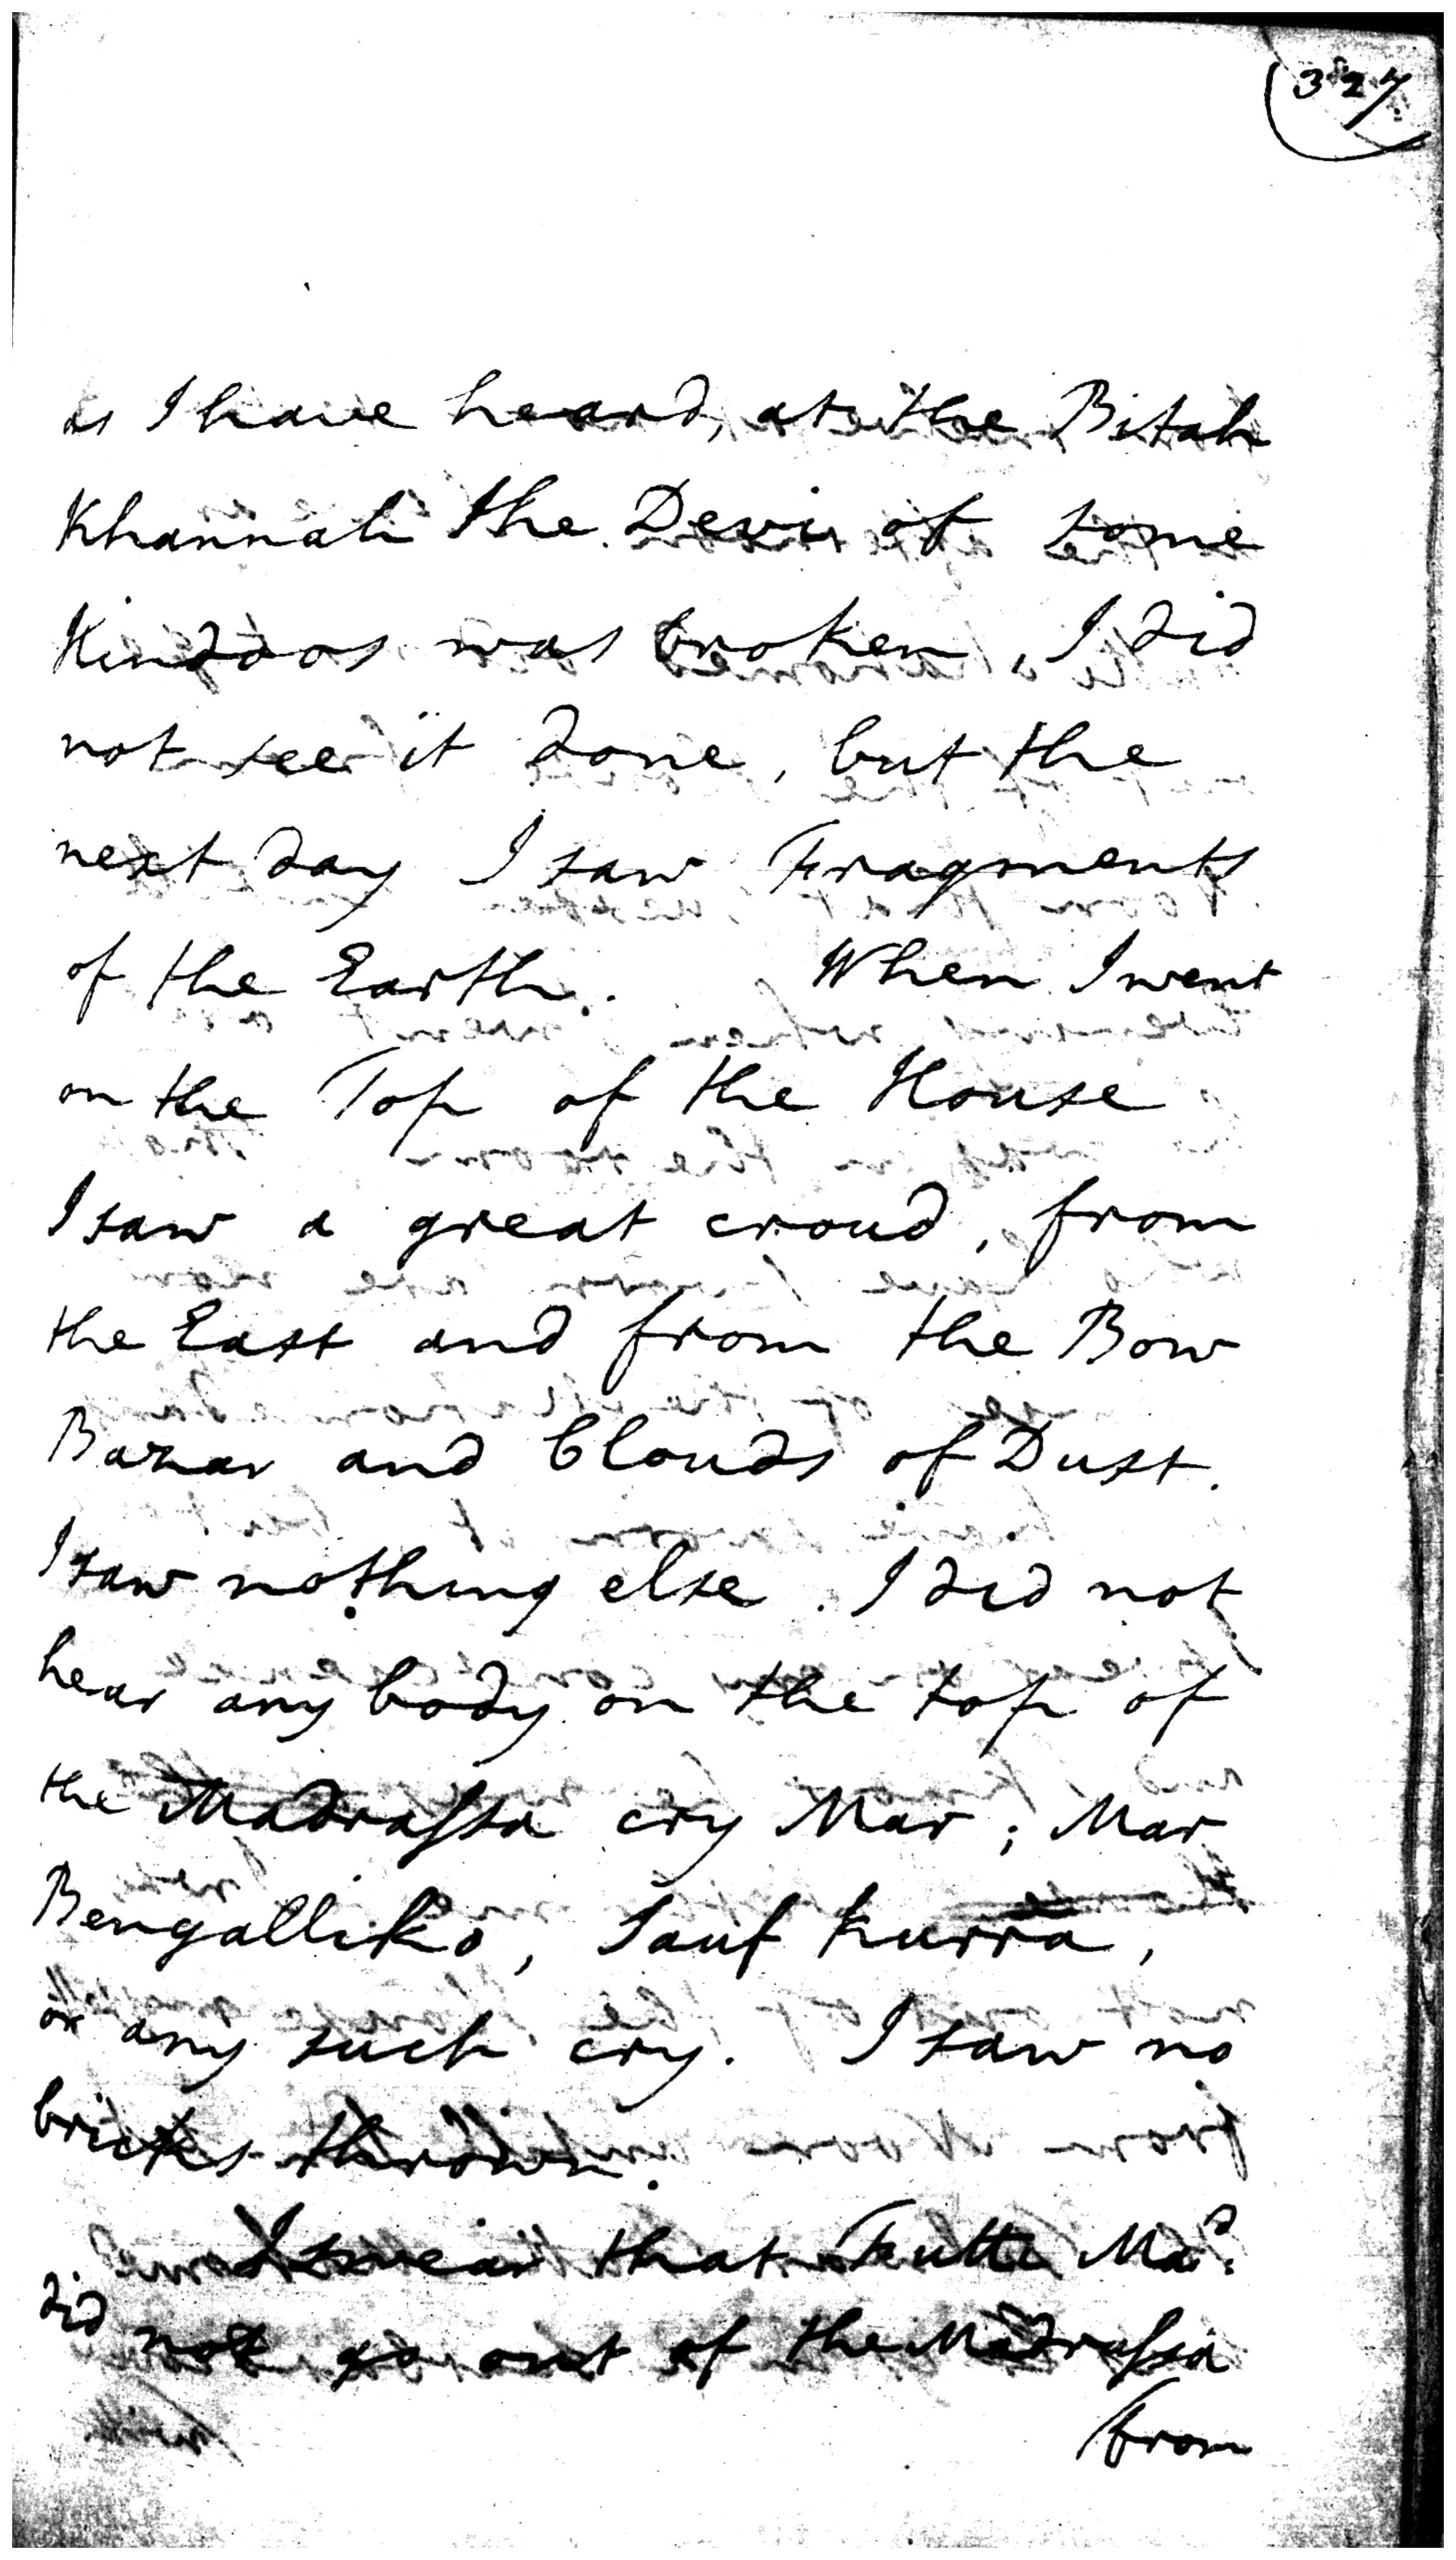 327
as I have heard, at the Bitah
Khannah the Devi of some
Hindoos was broken, I did
not see it done, but the
next day I saw Fragments
of the Earth. When I went
on the Top of the House
I saw a great croud, from
the East and from the Bow
Bazar and Clouds of Dust.
I saw nothing else. I did not
hear any body on the top of
the Madrassa cry Mar; Mar
Bengalliko, Sauf kurra,
or any such cry. I saw no
bricks thrown.
I swear that Futte Mad.
did not go out of the Madrassa
from